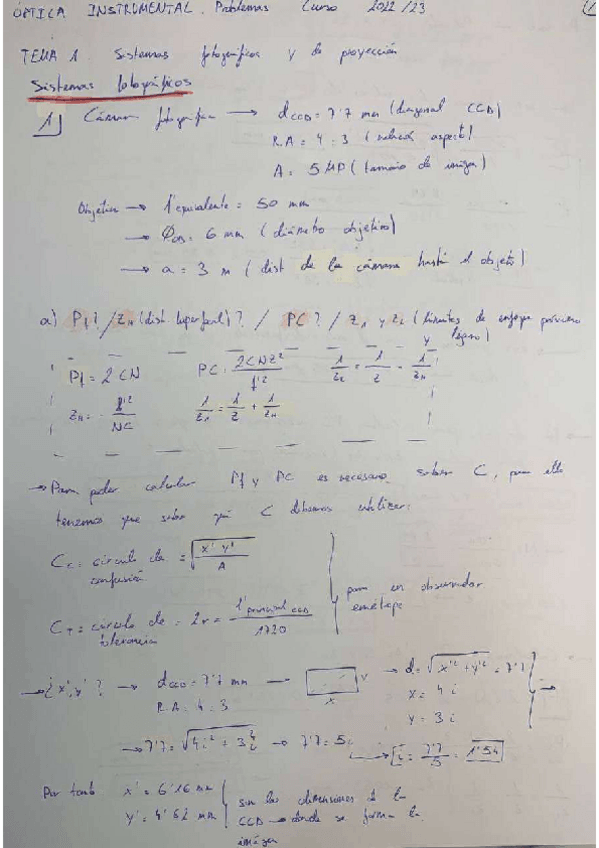 ÓPTICA INSTRUMENTAL. Problemas Curso 2022/23
TEMA 1. Sistemas fotográficos y de proyección
Sistemas fotográficos
1] Cámara fotográfica → dCCD = 7'7 mm (diagonal CCD)
R.A = 4:3 (relación aspecto)
A = 5 MP (tamaño de imagen)
Objetivo → f'equivalente = 50 mm
→ ϕOB = 6 mm (diámetro objetivo)
→ a = 3 m (dist de la cámara hasta el objeto)
a) Pf? / ZH (dist hiperfocal)? / PC? / Z1 y Z2 (límites de enfoque próximo y lejano)
Pf = 2CN PC = 2CNZ²/f'² 1/Z2 = 1/Z - 1/ZH
ZH = - f'²/NC 1/Z1 = 1/Z + 1/ZH
→ Para poder calcular Pf y PC es necesario saber C, para ello
tenemos que saber qué C debemos utilizar:
Cc = círculo de confusión = √(x' y'/A)
CT = círculo de tolerancia = 2r = f'principal CCD/1720
para un observador emétrope
→ ¿x', y'? → dCCD = 7'7 mm → d = √(x'² + y'²) = 7'7
R.A = 4:3 x = 4i
y = 3i
→ 7'7 = √(4i² + 3i²) → 7'7 = 5i → i = 7'7/5 = 1'54
Por tanto x' = 6'16 mm
y' = 4'62 mm
son las dimensiones de la
CCD → donde se forma la
imagen